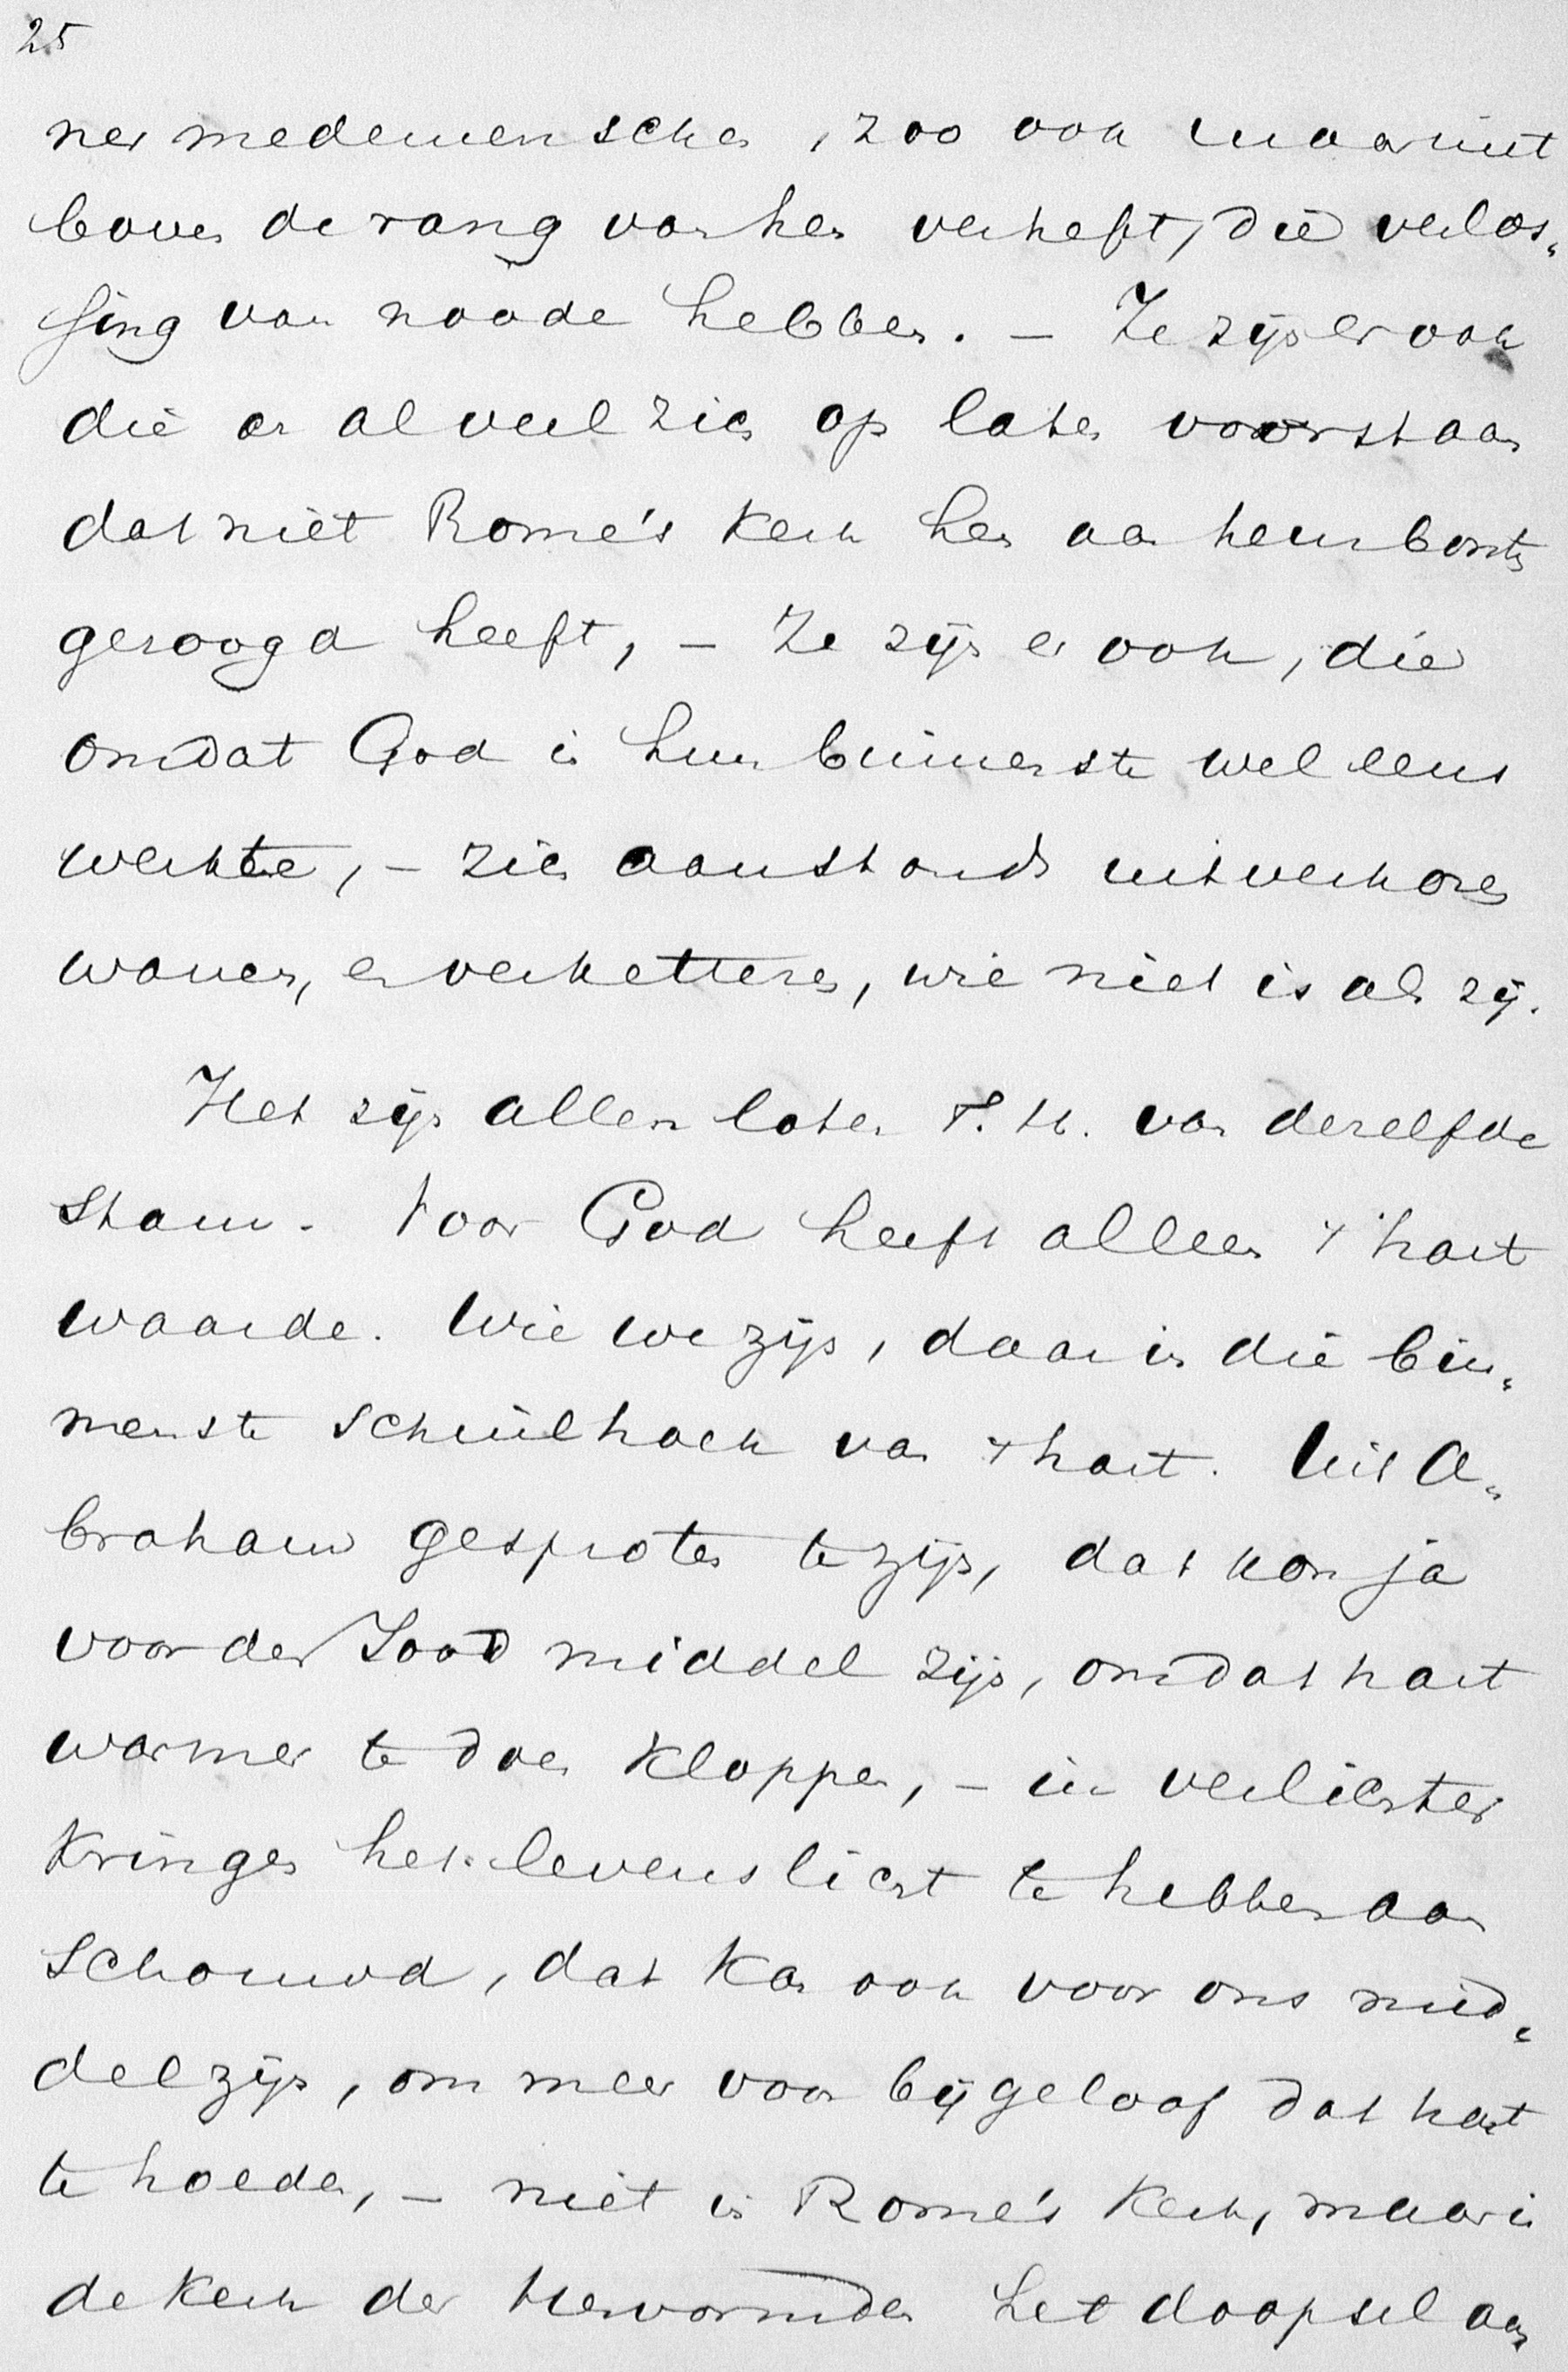 25
ner medemenschen, zoo ook waaruit
boven de rang van hen verheft, die verlos„
sing van noode hebben. – Ze zijn er ook
die er al veel zich op laten voorstaan
dat niet Rome's kerk hen aan heur borst
gezoogd heeft, – Ze zijn er ook, die
omdat God in hun binnenste wel eens
werkte, – zich aanstonds uitverkoren
wanen, en verketteren, wie niet is als zij.
Het zijn allen loten T. H. van denzelfden
stam. Voor God heeft alleen 't hart
waarde. Wie we zijn, daar in die bin„
nenste schuilhoek van 't hart. Uit A„
braham gesproten te zijn, dat kon ja
voor den Jood middel zijn, om dat hart
warmer te doen kloppen, – in verlichter
kringen het levenslicht te hebben aan
schouwd, dat kan ook voor ons mid„
del zijn, om meer voor bijgeloof dat hart
te hoeden, – niet in Rome's kerk, maar in
de kerk der Hervormden het doopsel aan